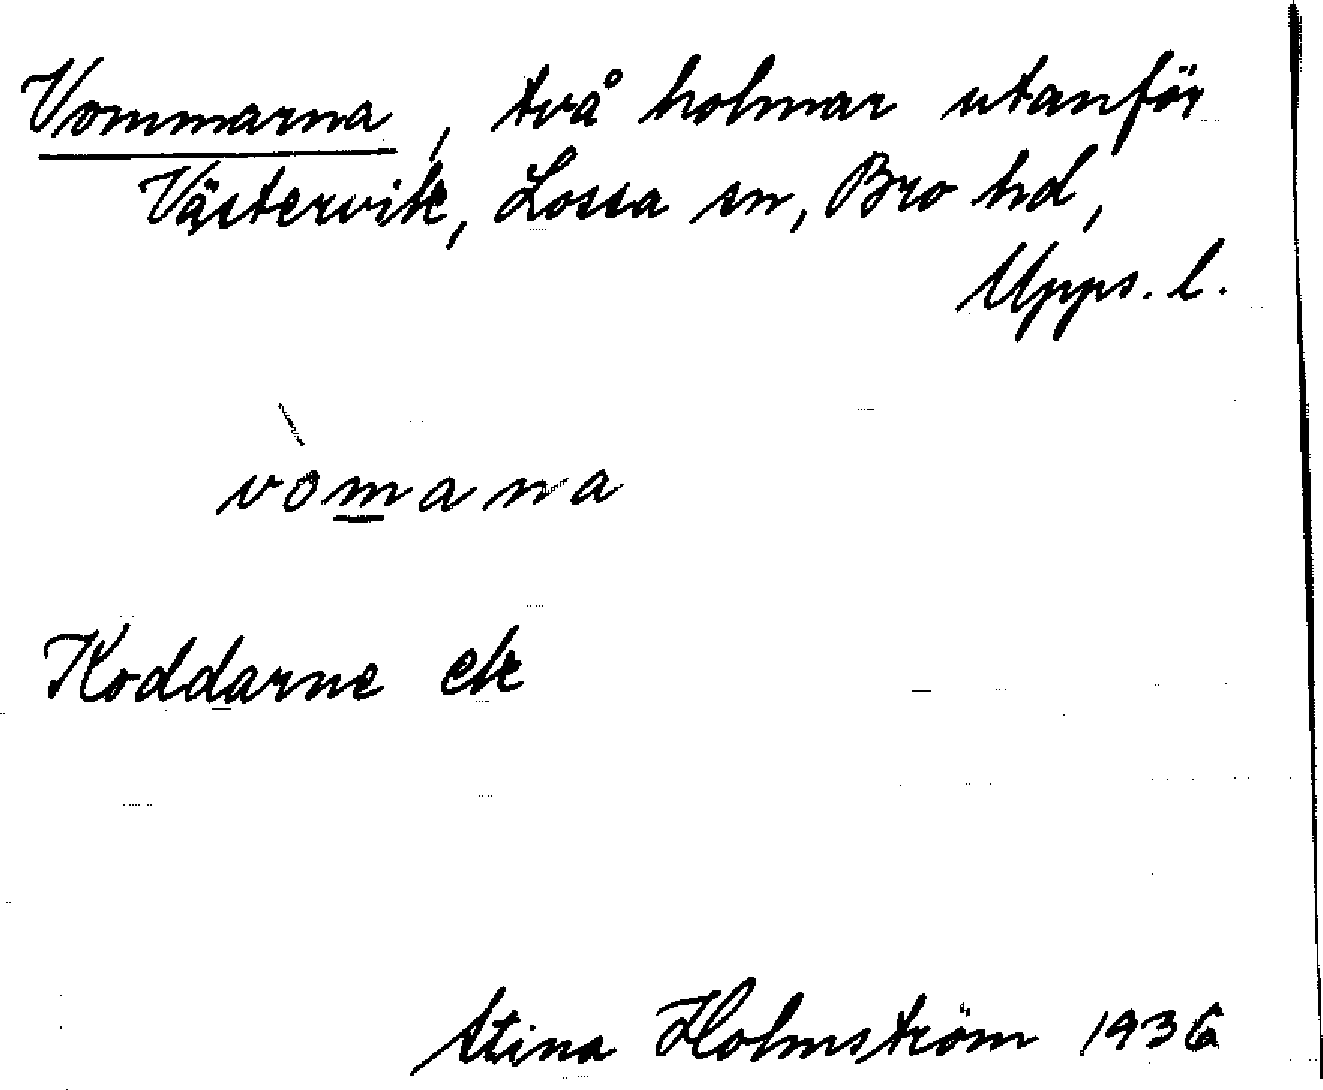 Vommarna, två holmar utanför
Västervik, Lossa sn, Bro hd,
Upps. l.
vòmana
Koddarne ek
Stina Holmström 1936